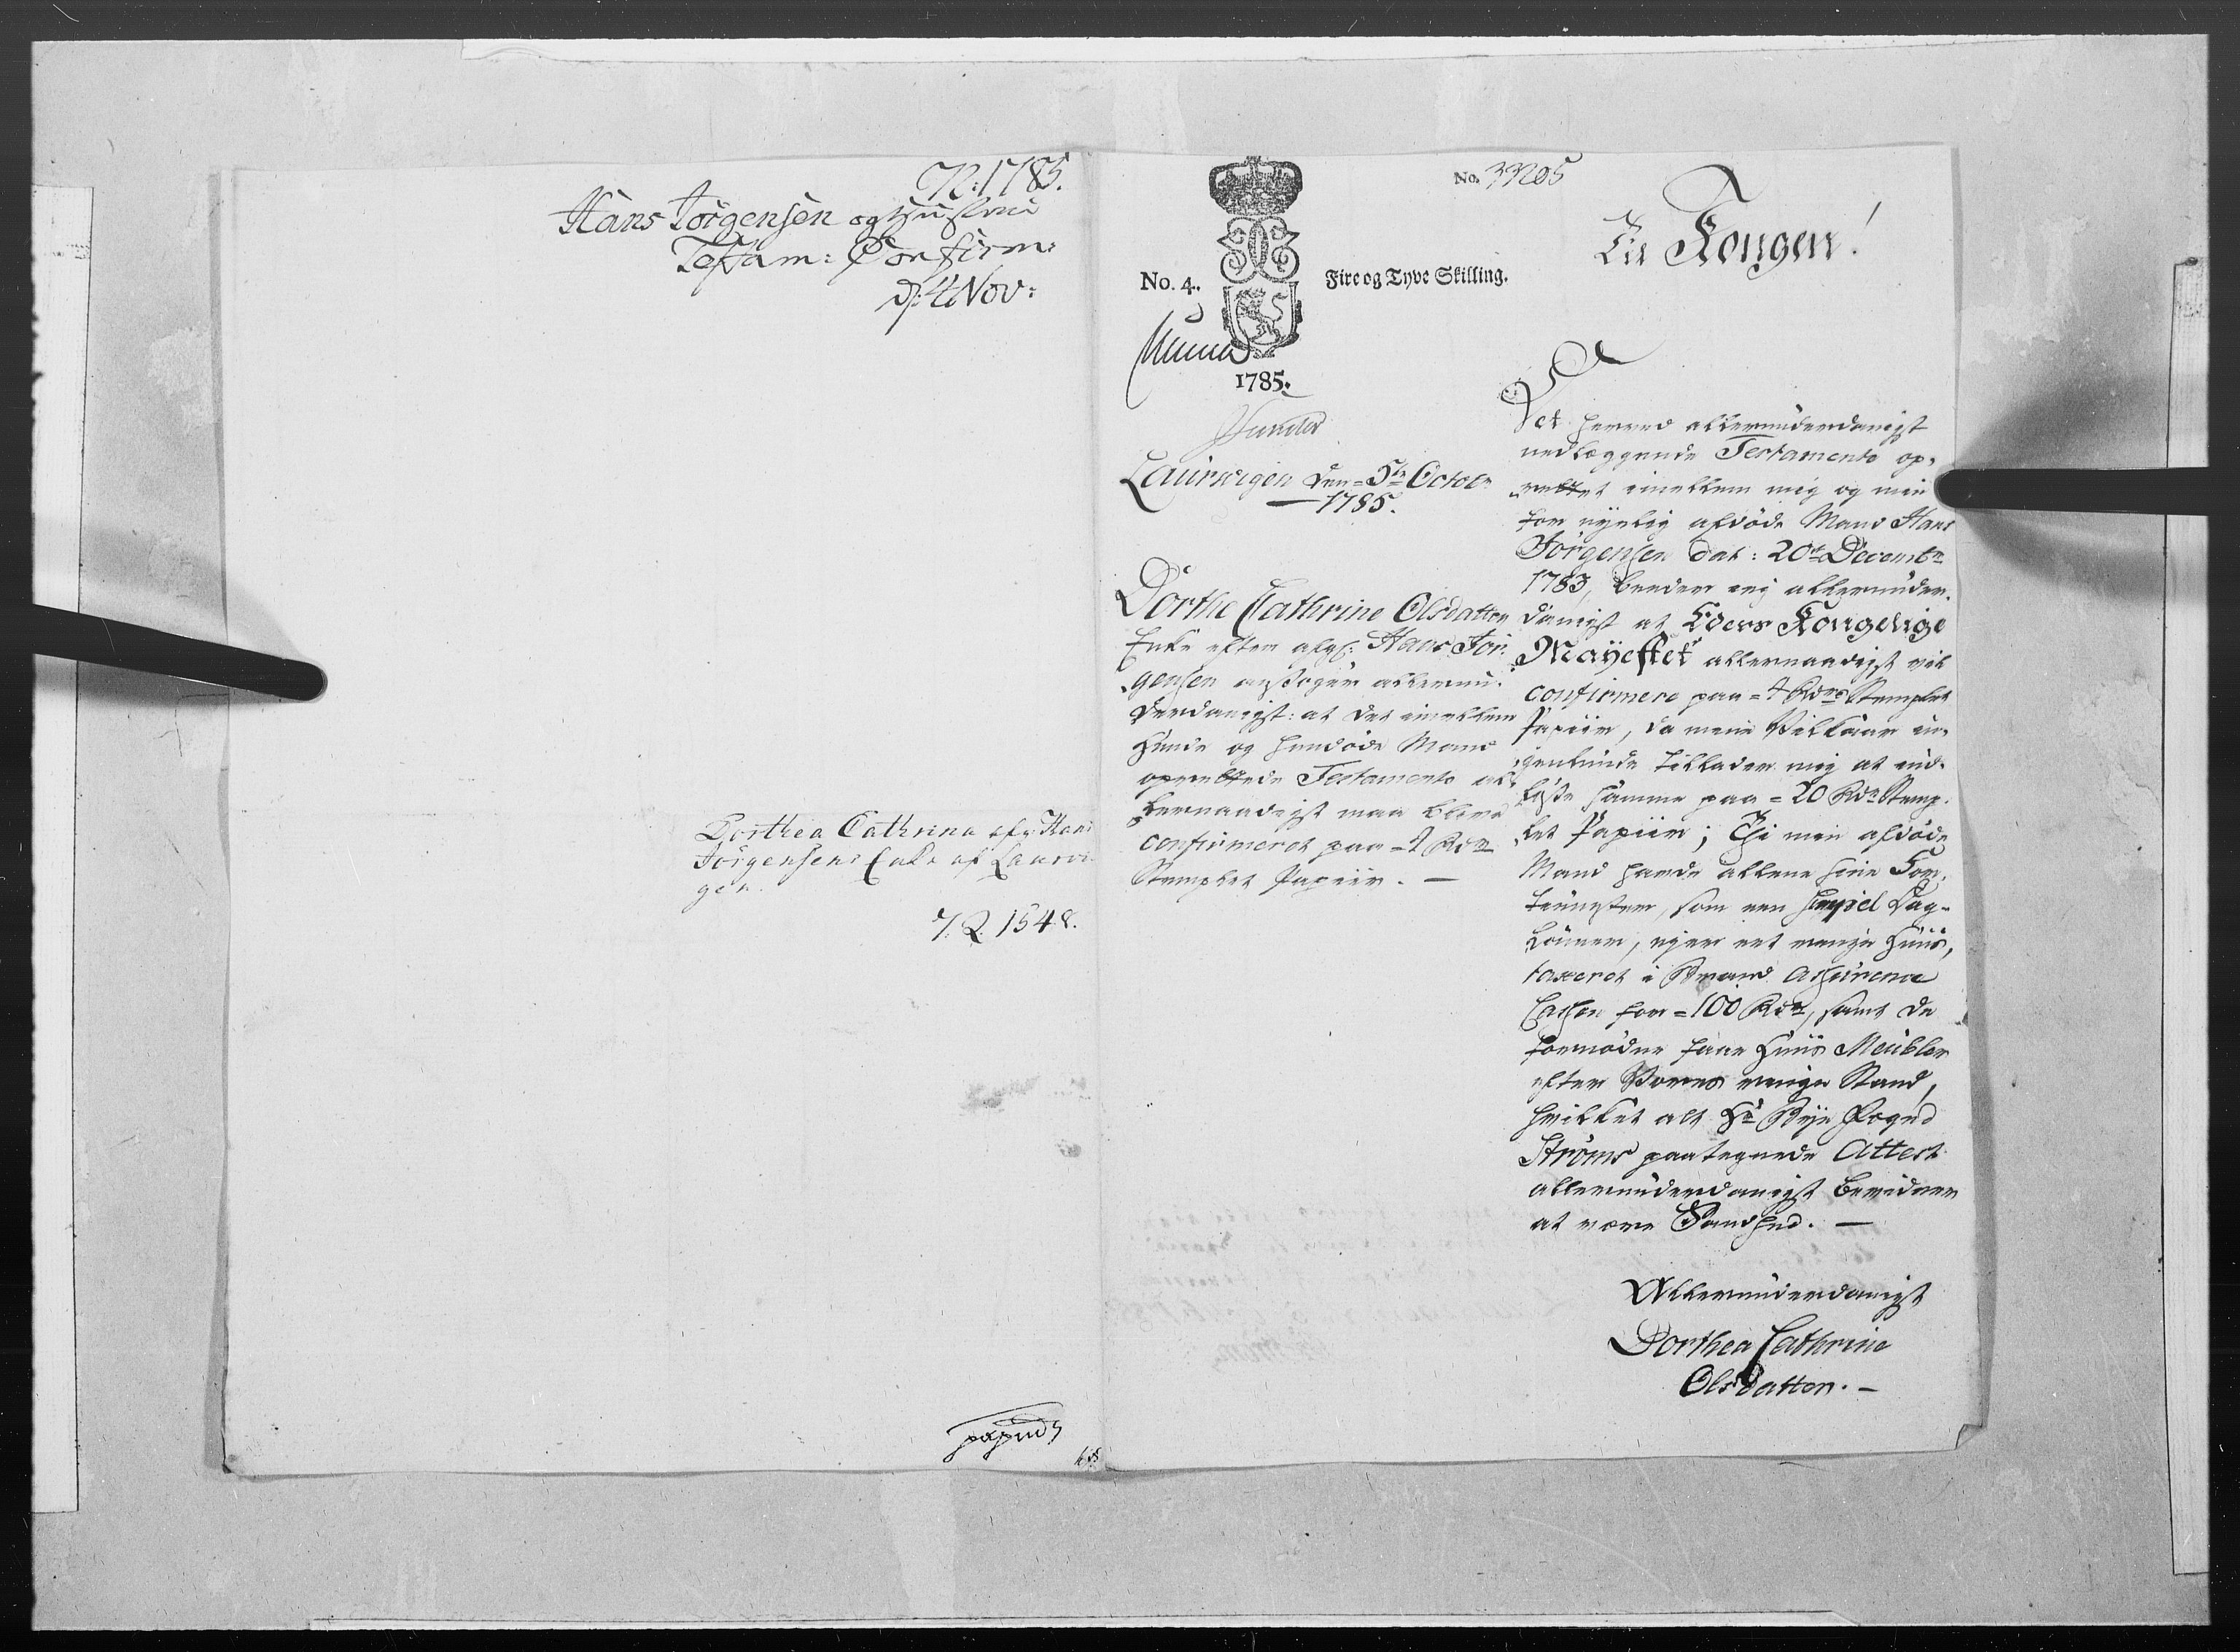 N: 1785.
Hans Jörgensen og Hustrue
Testam: Confirm:
d: 4 Nov:
Dorthea Cathrina afg: Hans
Jörgensens Enke af Laurvi-
gen.
7. Q. 1548.
No. 33205
No. 4.
Fire og Tyve Skilling.
1785.
Laurwigen den=5te Octobr
1785.
Dorthe Cathrine Olsdatter
Enke efter afg: Hans Jör-
gensen ansöger allerun-
derdanigst: at det imellem
hende og hendöde Mand
oprettede Testamente al-
lernaadigst maa blive
confirmeret paa = 4 Rdrs
Stemplet Papiir. —
Til Kongen!
Det herved allerunderdanigst
nedlæggende Testamente op-
rettet imellem mig og min
for nyelig afdöde Mand Hans
Jörgensen dat: 20de Decembr
1783, beeder jeg allerunder-
danigst at Eders Kongelige
Mayestet allernaadigst vil
confirmere paa = 4 Rdrs Stemplet
Papiir, da mine Vilkaar in-
genlunde tillader mig at ind-
löse samme paa = 20 Rdr Stemp-
let Papiir; Thi min afdöde
Mand havde allene sine For-
tienester, som een simpel Dag-
Lönner, ejer eet ringe Huus,
taxeret i Brand Assurence
Cassen for = 100 Rdr, samt de
fornödne faae Huus Meubler
efter Vores ringe Stand,
hvilket alt Hr Bye Foged
Ströms paategnede Attest
allerunderdanigst bevidner
at være Sandhed. —
Allerunderdanigst
Dorthea Cathrine
Olsdatter. —